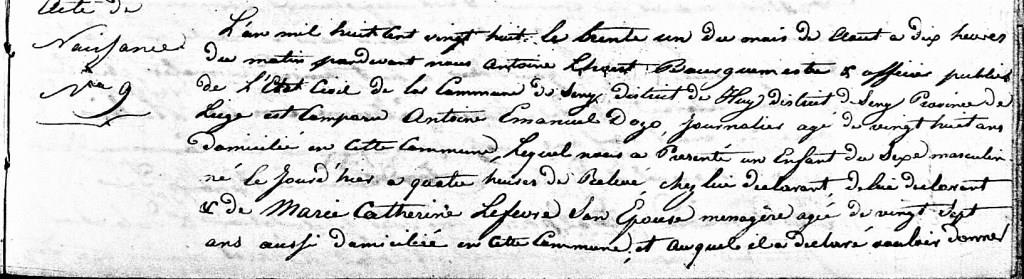 Acte de
Naissance
N.º 9
L'an mil huit cent vingt huit le trente un du mois de Aout a dix heures
du matin pardevant nous Antoine Bourguemestre & officier public
de l'Etat Civil de la Commune de Seny district de Huy district de Seny Province de
Liege est Comparu Antoine Emanuel Dozo, Journalier agé de vingt huit ans
domicilié en Cette Commune, Lequel nous a Presenté un Enfant du Sexe masculin
né le Jour d'hier a quatre heures de Relevé, chez lui declarant, de lui declarant
& de Marie Catherine Lefevre Son Epouse menagère agée de vingt Sept
ans aussi domiciliée en Cette Commune, et auquel il a declaré vouloir donner